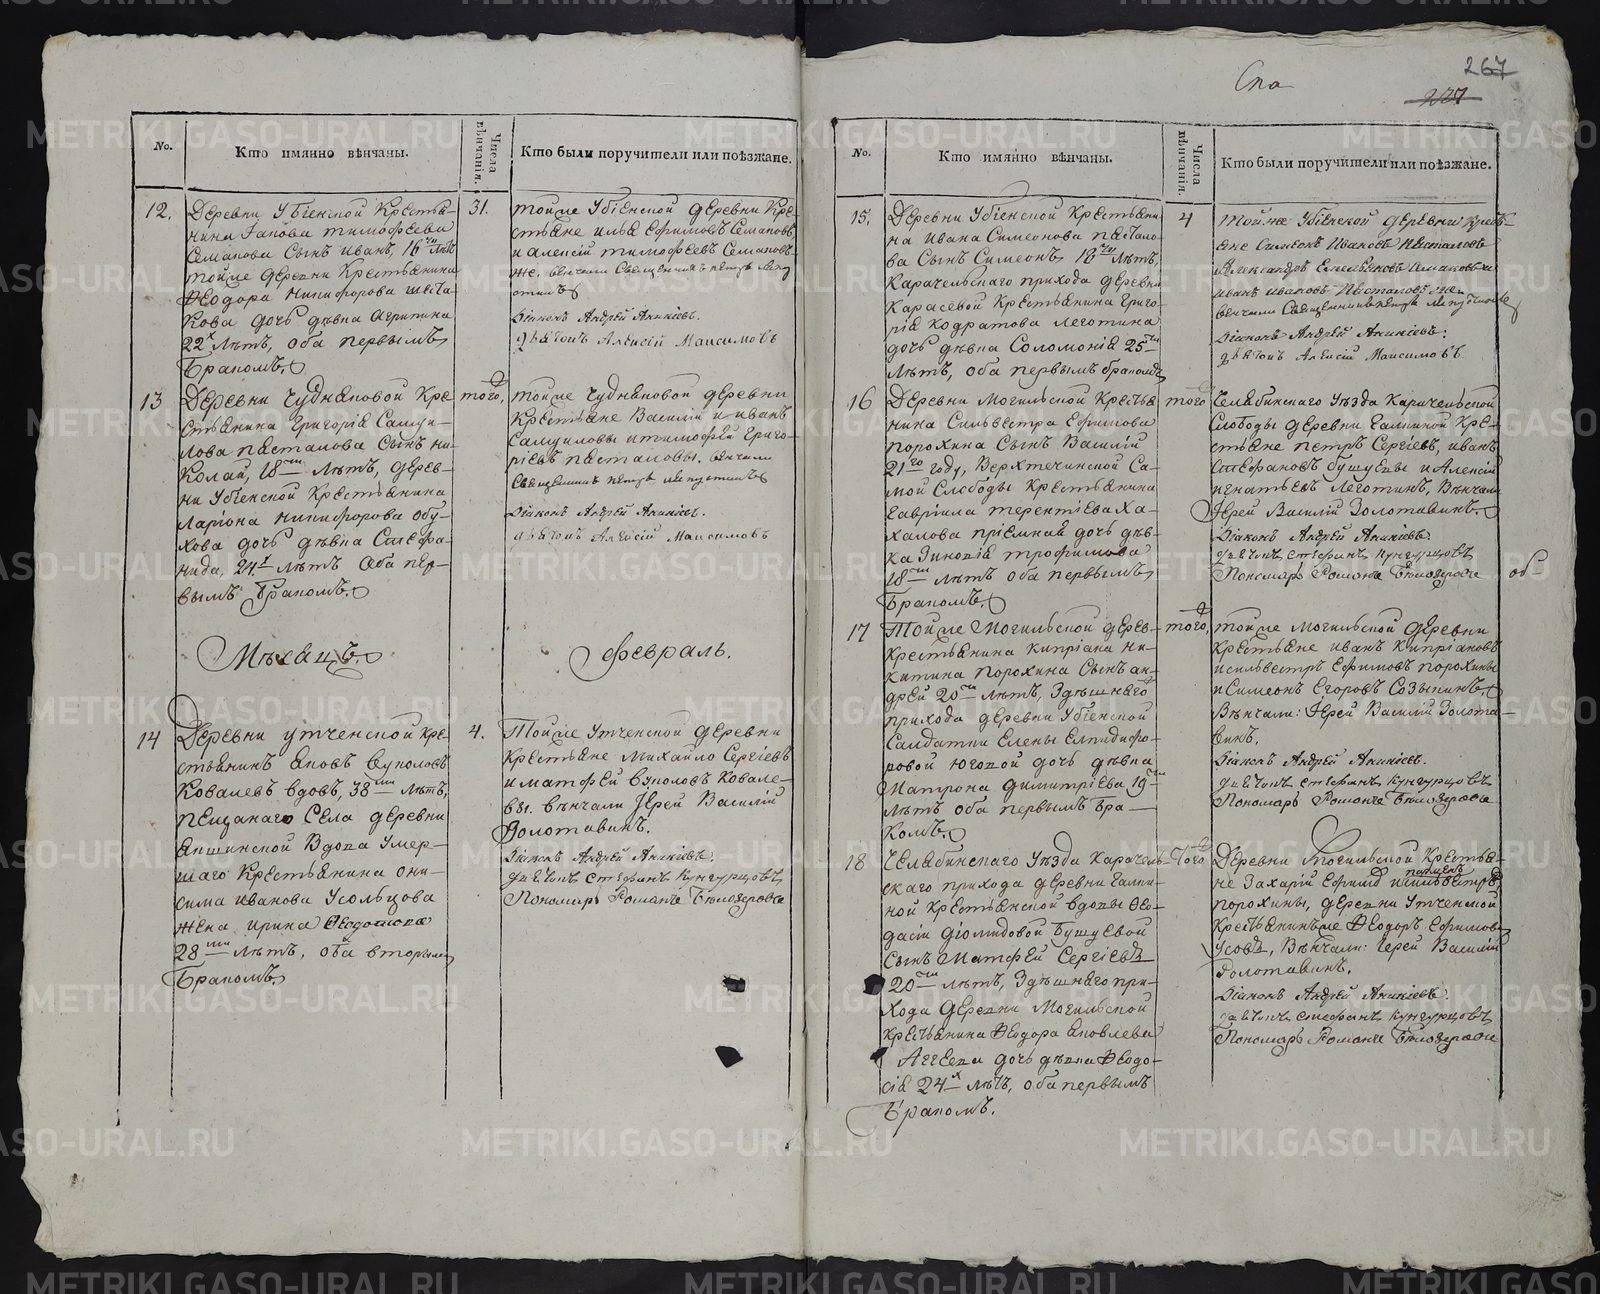 Спа
267
227
No.
Кто имянно вѣнчаны.
Числа вѣнчанія.
Кто были поручители или поѣзжане.
12.
Деревни Убiенской Кресть-
нина Іакова тимофѣева
Семанова Сынъ Иванъ, 16 ти лѣтъ
тойже деревни Крестьянина
Ѳеодора Никифорова шеста-
кова дочь дѣвка Агрипина
22 х лѣтъ, оба первымъ
Бракомъ.
31.
тойже Убiенской деревни Кре-
стьяне илья Ефимовъ Семановъ
и алексiй тимофеевъ Семановъ
же, венчали Священникъ петръ
Дiаконъ Андрей Аникiевъ.
дьячокъ Алексiй Максимовъ
13
Деревни Чудняковой Кре
стьянина Григорiя Самуи-
лова пасталова Сынъ Ни-
колай, 18 ти лѣтъ, дерев-
ни Убiенской Крестьянина
Ларiона Никифорова Обу-
хова дочь дѣвка Стефа-
нида, 24 х лѣтъ Оба пер-
вымъ Бракомъ.
того,
тойже Чудняковой деревни
Крестьяне Василiй и иванъ
Самуиловы и тимофей Григо-
рiевъ пасталовы. венчали
Священникъ петръ
Дiаконъ Андрей Аникiевъ.
дьячокъ Алексiй Максимовъ
Мѣсяцъ.
Февраль.
14
Деревни утченской Кре-
стьянинъ Яковъ Вуколовъ
Ковалевъ вдовъ, 38 ми лѣтъ,
пещанаго Села деревни
Якшинской Вдова Умер-
шаго Крестьянина Они-
сима иванова Усольцова
жена ирина Ѳеодотова
28 ми лѣтъ, оба вторымъ
Бракомъ.
4.
Тойже Утченской деревни
Крестьяне Михайло Сергiевъ
и матфей Вуколовъ Ковале-
вы. вѣнчали Iерей Василiй
Золотавинъ.
Дiаконъ Андрей Аникiевъ.
дьячокъ стефанъ Кунгурцовъ
Пономарь Романъ Бѣлозеровъ
No.
Кто имянно вѣнчаны.
Числа вѣнчанія.
Кто были поручители или поѣзжане.
15.
Деревни Убiенской Крестьяни
на Ивана Симеонова пастало-
ва Сынъ Симеонъ, 18 ти лѣтъ,
Карачельскаго прихода деревни
Карасевой Крестьянина Григо-
рiя Кодратова Леготина
дочь дѣвка Соломонiя 25 ти
Лѣтъ, оба первымъ бракомъ
4
Той же Убiенской деревни Кресть-
яне Симеонъ Ивановъ Пасталовъ
Александръ Емельяновъ Семаковъ и
иванъ ивановъ Пасталовъ же
венчали Священникъ петръ
Дiаконъ Андрей Аникiевъ.
дьячокъ Алексiй Максимовъ.
16
Деревни Могильской Кресть
нина Сильвестра Ефимова
порохина Сынъ Василiй
21 го году, Верхтечинской Са-
мой Слободы Крестьянина
Гаврiила терентiева Ха-
халова прiемная дочь дѣв-
ка Зиновiя трофимова
18 ти лѣтъ оба первымъ
Бракомъ.
того
Челябинскаго Уѣзда Карачельской
Слободы деревни Галкиной Кре-
стьяне петръ Сергiевъ, иванъ
Стефановъ бушуевы и Алексiй
игнатьевъ леготинъ, Вѣнчали
Iерей Василiй Золотавинъ.
Дiаконъ Андрей Аникiевъ.
дьячокъ стефанъ Кунгурцовъ
Пономарь Романъ Бѣлозеровъ
об-
17
Тойже Могильской дерев-
Крестьянина Кипрiана Ни-
китина порохина Сынъ ан-
дрей 20 ти лѣтъ, Здѣшняго
прихода деревни Убiенской
Салдатки Елены Елпидифо-
ровой Юговой дочь дѣвка
Матрона Димитрiева 19 ти
лѣтъ оба первымъ Бра-
комъ.
того,
тойже Могильской деревни
Крестьяне иванъ Кипрiановъ
и сильвестръ Ефимовъ порохины
и Симеонъ Егоровъ Созыкинъ
Вѣнчали: Iерей Василiй Золота-
винъ.
Дiаконъ Андрей Аникiевъ.
дьячокъ стефанъ Кунгурцовъ
Пономарь Романъ Бѣлозеровъ
18
Челябинскаго Уѣзда Карачель-
скаго прихода деревни Галки-
ной Крестьянской вдовы Ѳео-
дасiи Дiомидовой Бушуевой
Сынъ Матфей Сергiевъ
20 ти лѣтъ, Здѣшняго при-
хода деревни Могильской
Крестьянина Ѳеодора Яковлева
Агеева дочь дѣвка Ѳеодо-
сiя 24 х лѣтъ, оба первымъ
Бракомъ.
Того
Деревни Могильской Крестья-
не Захарiй Ефимовъ и сильвестръ
порохины, деревни Утченской
Крестьянинъ же Ѳеодоръ Ефимовъ
Усовъ, Вѣнчали: Iерей Василiй
Золотавинъ.
Дiаконъ Андрей Аникiевъ.
дьячокъ стефанъ Кунгурцовъ
Пономарь Романъ Бѣлозеровъ
METRIKI.GASO-URAL.RU